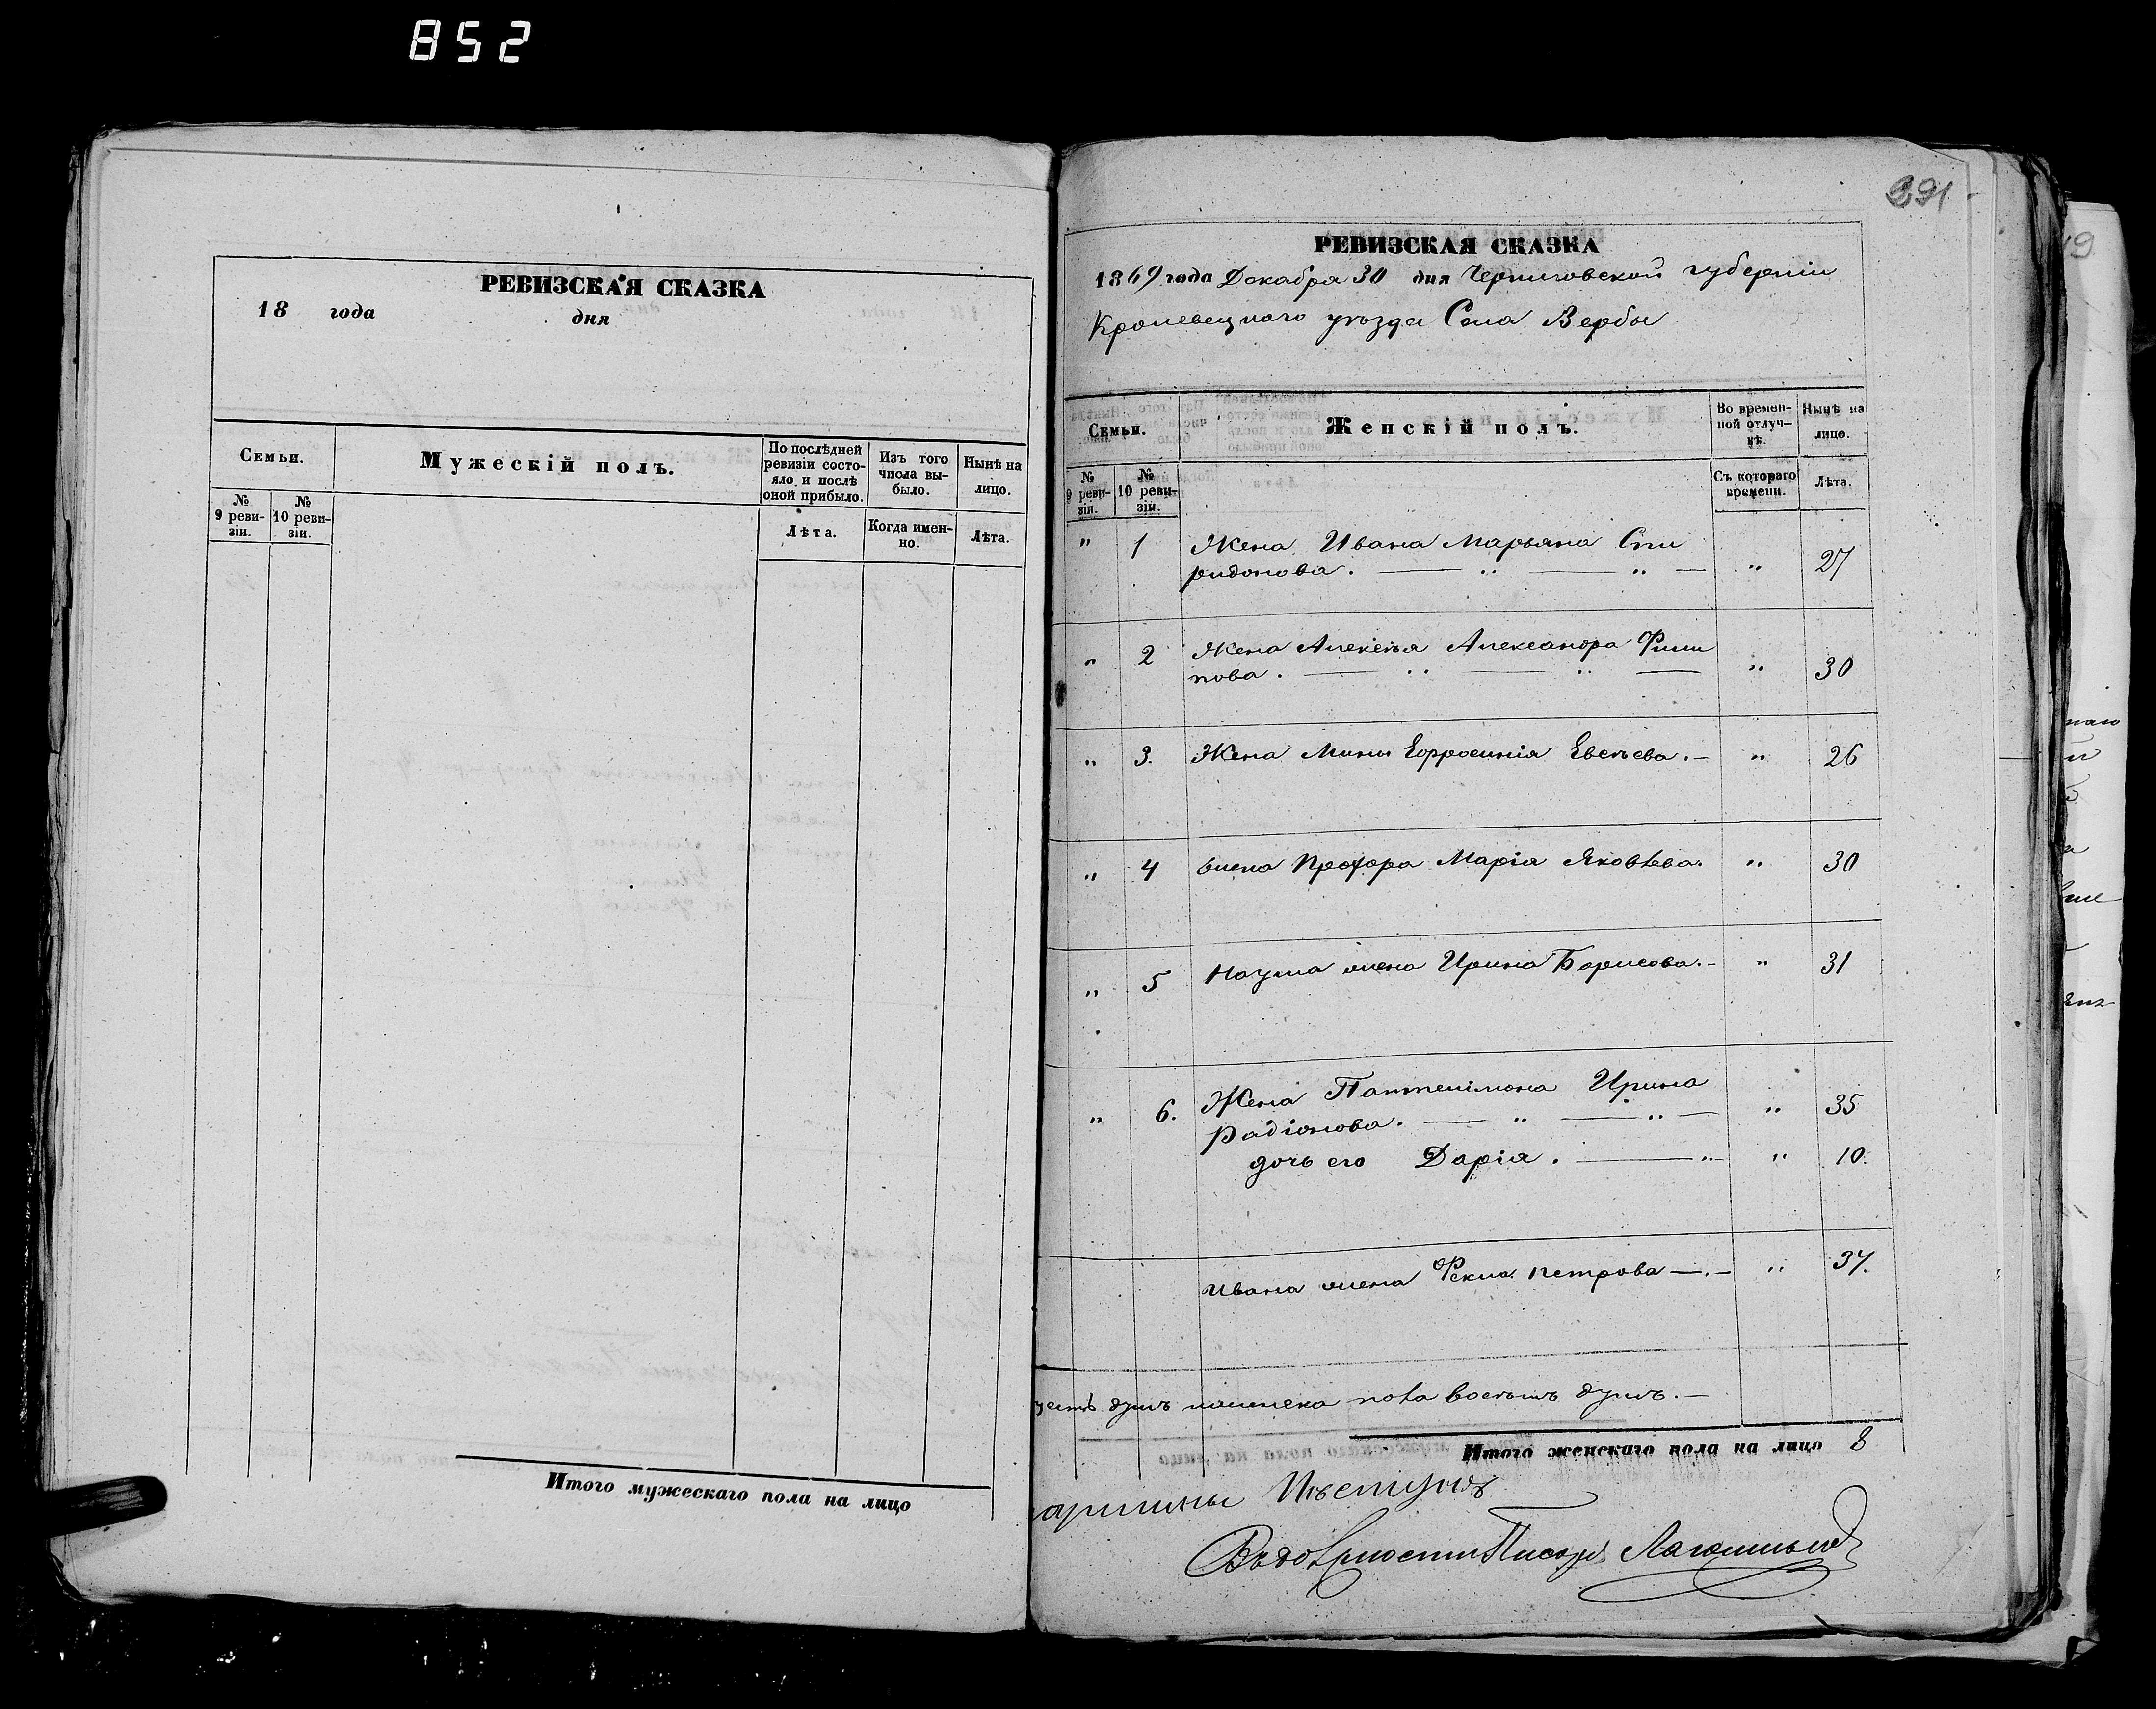 852
РЕВИЗСКАЯ СКАЗКА
18 года дня
Семьи.
Мужескій полъ.
По послѣдней ревизіи состояло и послѣ оной прибыло.
Изъ того числа выбыло.
Нынѣ на лицо.
№ 9 ревизіи.
№ 10 ревизіи.
Лѣта.
Когда именно.
Лѣта.
Итого мужескаго пола на лицо
391
РЕВИЗСКАЯ СКАЗКА
1869 года Декабря 30 дня Черниговской губерніи
Кролевецкаго уѣзда Села Вербы
Семьи.
Женскій полъ.
Во временной отлучкѣ.
Нынѣ на лицо.
№ 9 ревизіи.
№ 10 ревизіи.
Съ котораго времени.
Лѣта.
" 1 Жена Ивана Марьяна Спи
ридонова. — " — " — " 27
" 2 Жена Алексѣя Александра Фили
пова. — " — " — " 30
" 3. Жена Мины Ефросинія Евсѣева. — " 26
" 4 Жена Прохора Марія Яковлева. " 30
" 5 Наума жена Ирина Борисова. — " 31
" 6. Жена Пантелимона Ирина
Радіонова. — " — " — " 35
дочь его Дарія. — " — " 10.
Ивана жена Фекла Петрова — . — " 37.
душъ женска пола восемь душъ. —
Итого женскаго пола на лицо 8
Писарь